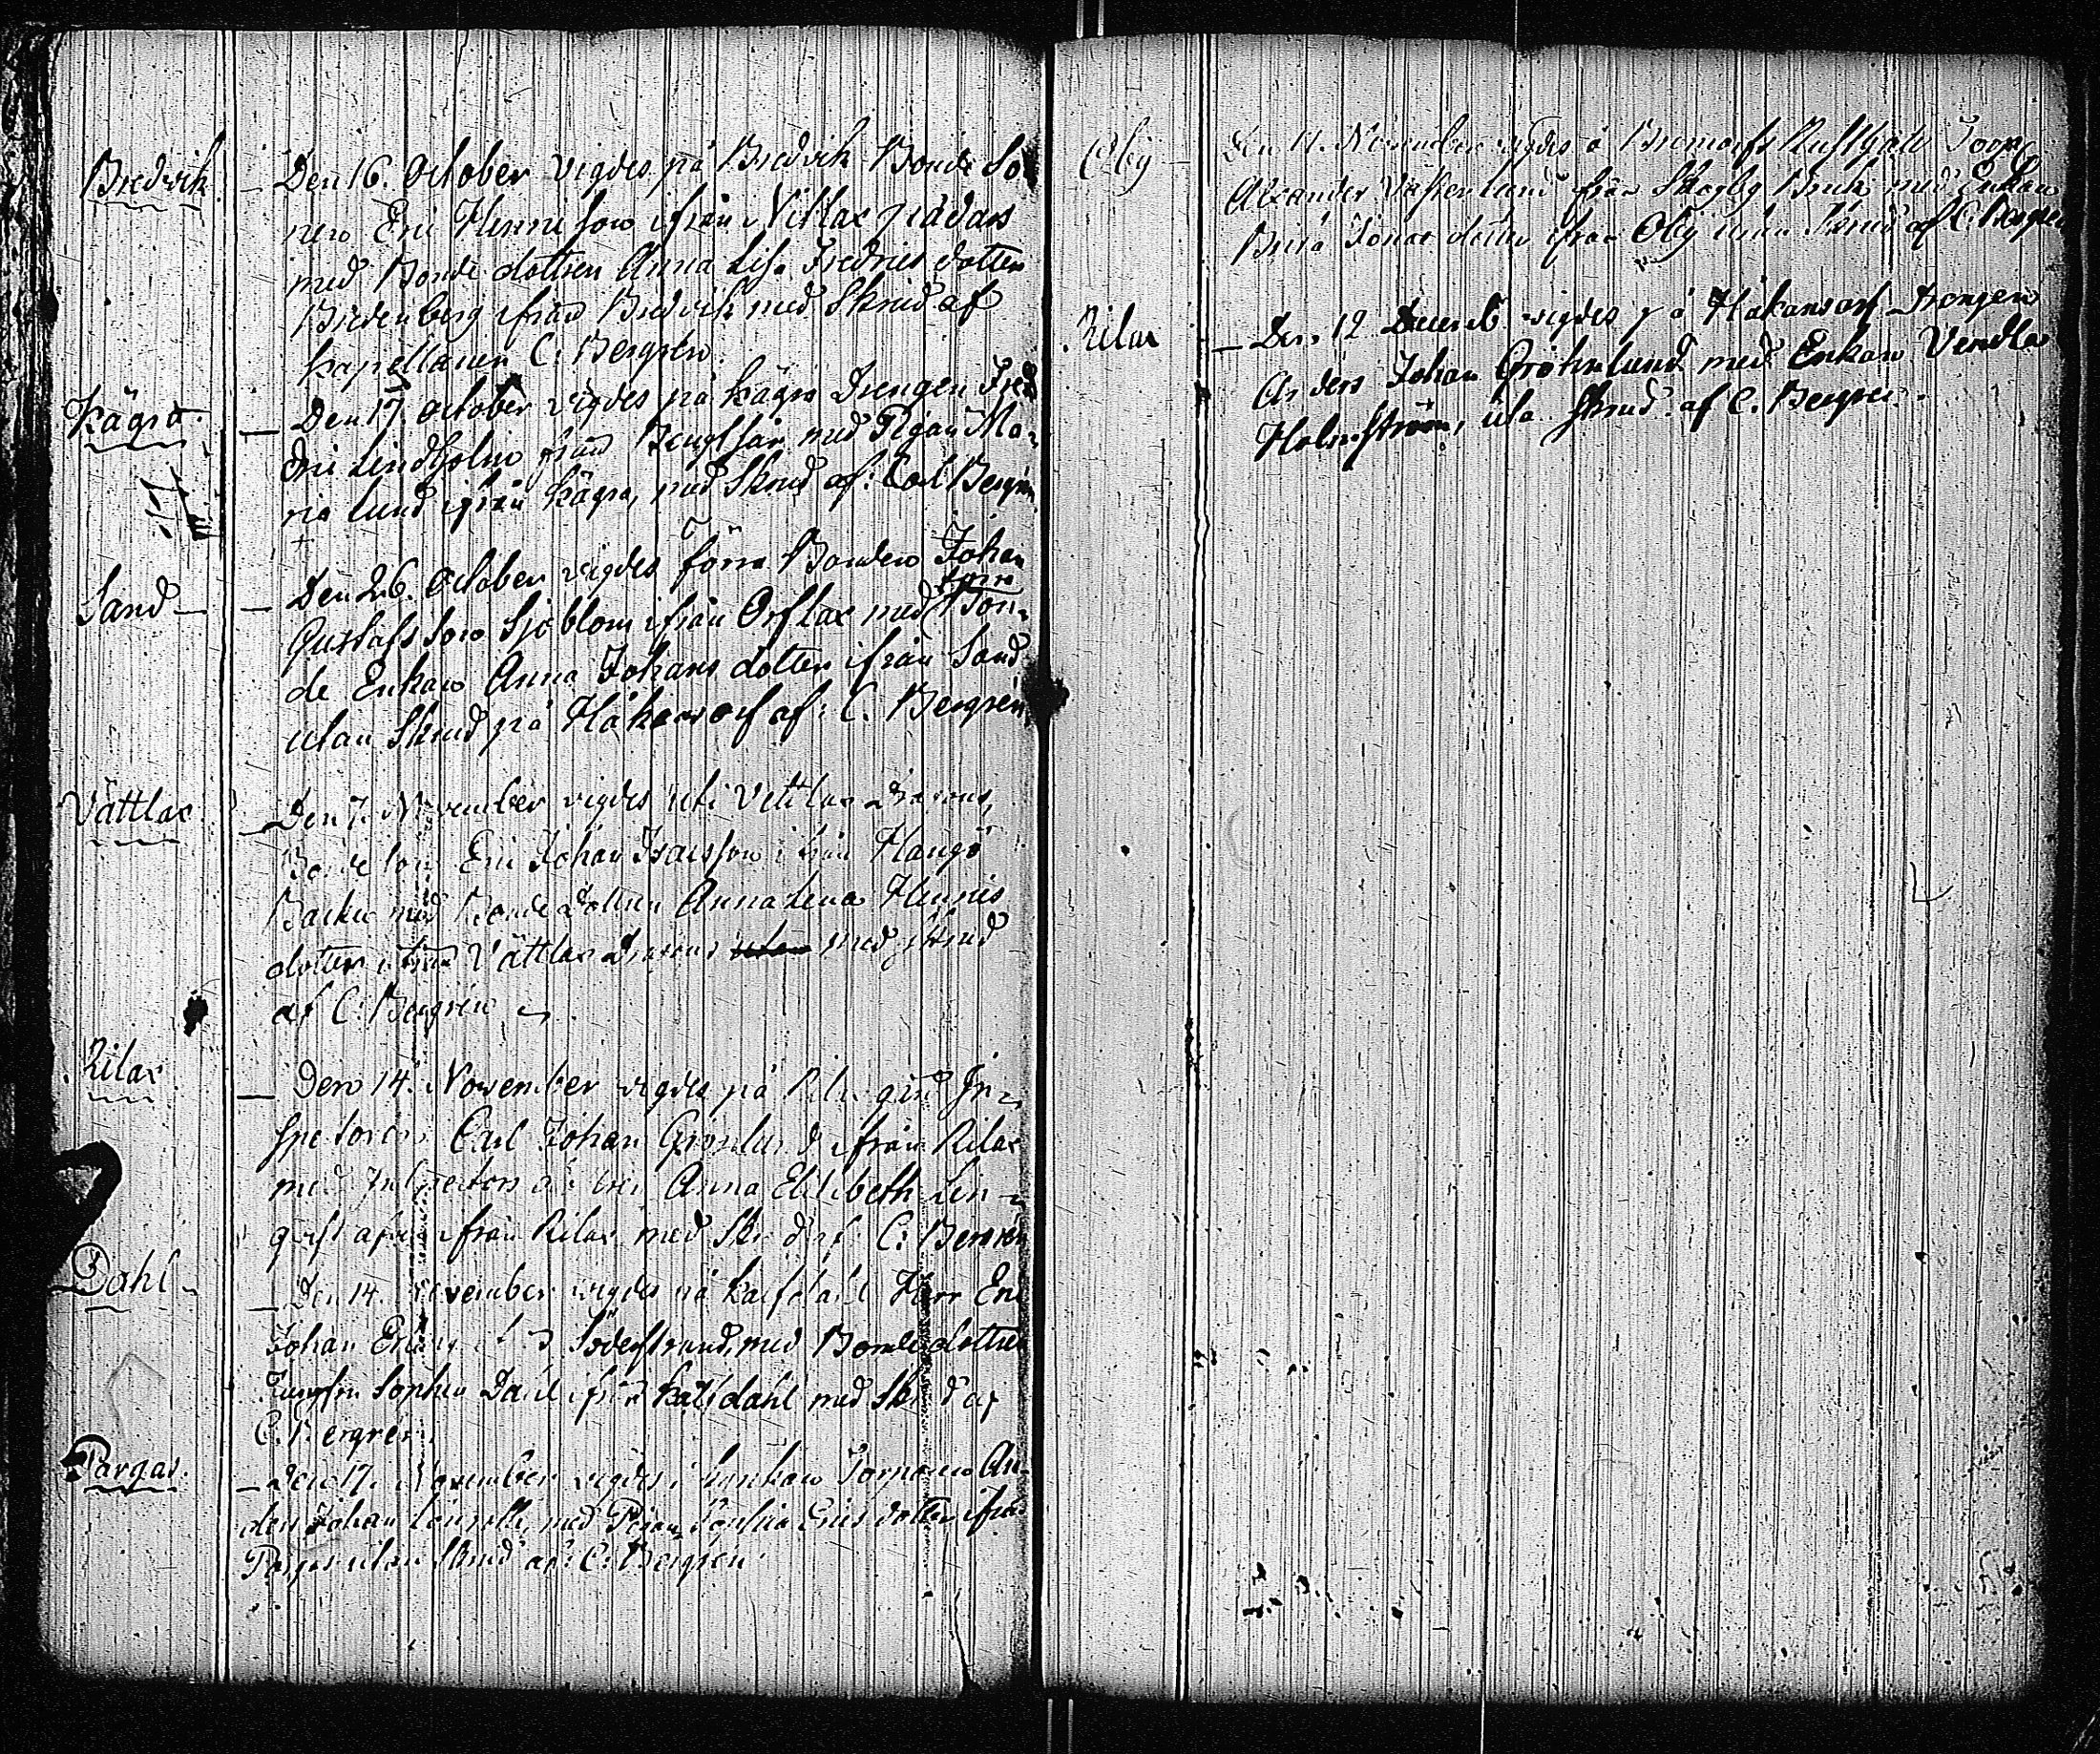 Bredvik
Den 16. October vigdes på Bredvik Bonde So
nen Eric Henricson ifrån Nitlax
med Bonde dottren Anna Lisa Fredrics dotter
Bredenberg ifrån Bredvik med Skrud af
Kapellanen C. Bergrén.
Kägra
Den 17 October vigdes på Kägra Drengen Fred
Lindholm från med Pigan Ma-
ria Lund ifrån Kägra, med Skrud af: Carl Bergrén
Sand
Den 26. October vigdes förra Bonden Johan
Gustafs Son Sjöblom ifrån Orslax med förra Bon-
de Enkan Anna Johans dotter ifrån Sand
utan Skrud på Håkansarf af: C. Bergrén
Vättlax
Den 7. November vigdes uti Vettlax
Bonde son Eric Johan Isacsson ifrån Hangö
Backen med Bonde dottren Anna Lena Henrics
dotter ifrån Vättlax utan med Skrud
af C. Bergrén
Rilax
Den 14. November vigdes på Rilax gård In-
spectoren Carl Johan Grönlund ifrån Rilax
med Inspectors Anna Elisabeth Lin-
ifrån Rilax med Skrud af C: Bergrén
Dahl
Den 14. November vigdes på Kalfdahl Herr Eric
Johan Söderstrand, med Bonde dottren
Jungfru Sophia Dahl ifrån Kalfdahl med Skrud af
C. Bergrén.
Pargas
Den 17. November vigdes i Torparen An-
ders Johan med Pigan Ericsdotter ifrån
Pargas utan Skrud af: C: Bergrén
Öby
Den 11. November vigdes å Bromarfs Torp
Alexander Västerlund från Skogby Bruk med Enkan
Brita Jonas dotter ifrån Öby utan Skrud af C. Bergrén
Rilax
Den 12 Decemb. vigdes på Håkansarf Drengen
Anders Johan Gröhnlund med Enkan Vendla
Holmström, uta Skrud af C. Bergrén.